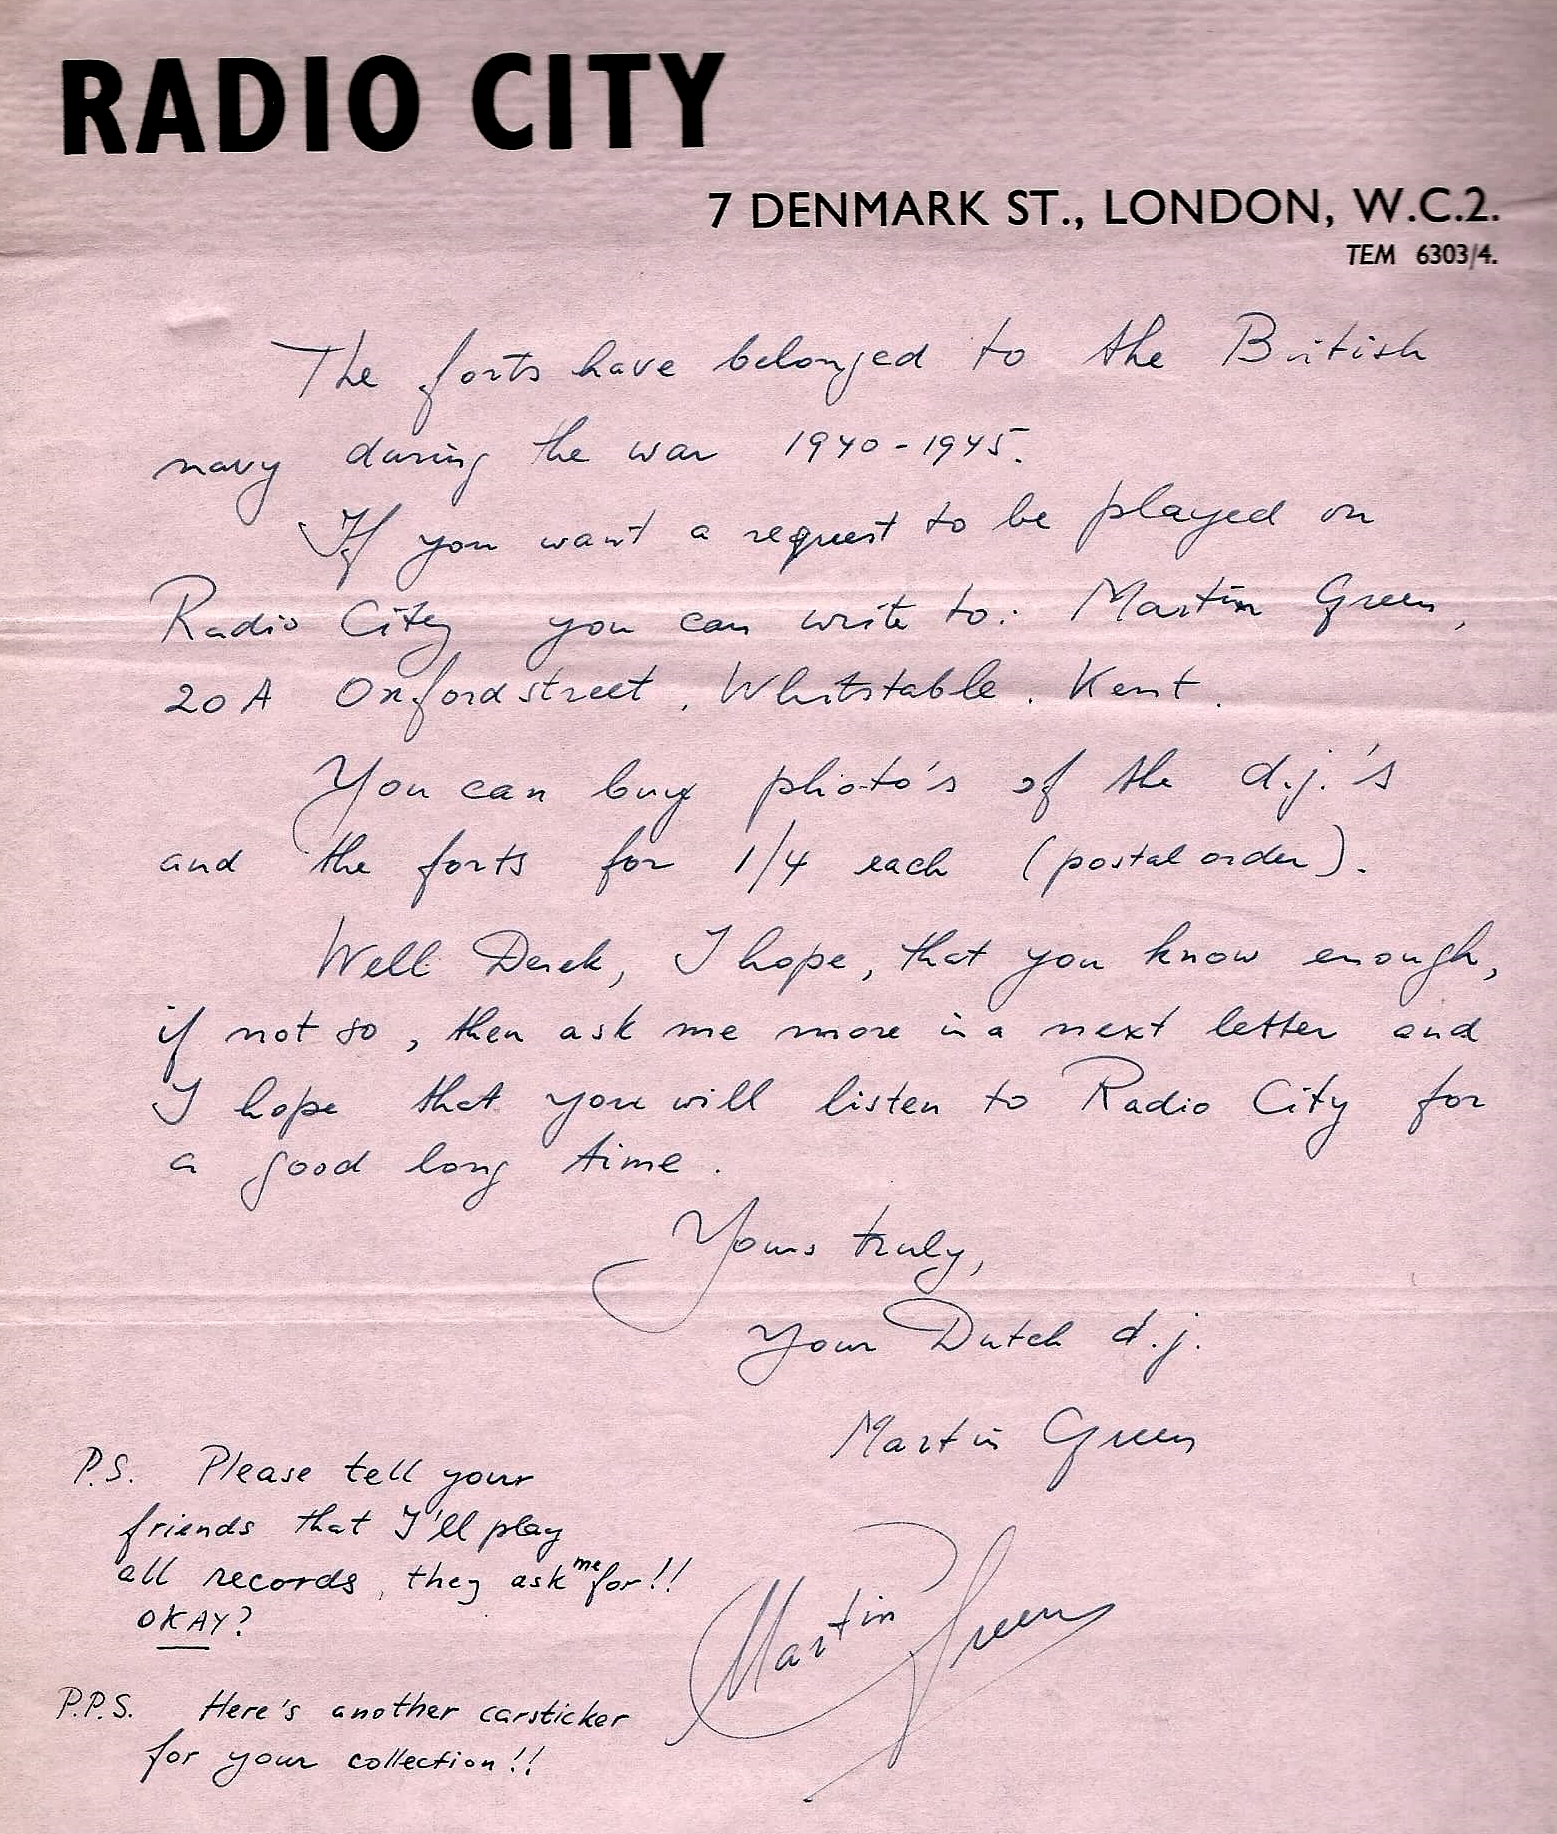 RADIO CITY
7 DENMARK ST., LONDON, W.C.2.
TEM 6303/4.
The forts have belonged to the British
navy during the war 1940-1945.
If you want a request to be played on
Radio City you can write to: Martin Green,
20A Oxfordstreet, Whitstable. Kent.
You can buy photo's of the d.j.'s
and the forts for 1/4 each (postal order).
Well Derek, I hope, that you know enough,
if not so, then ask me more in a next letter and
I hope that you will listen to Radio City for
a good long time.
Yours truly,
Your Dutch d.j.
Martin Green
P.S. Please tell your
friends that I'll play
all records, they ask me for!!
OKAY?
Martin Green
P.P.S. Here's another carsticker
for your collection!!